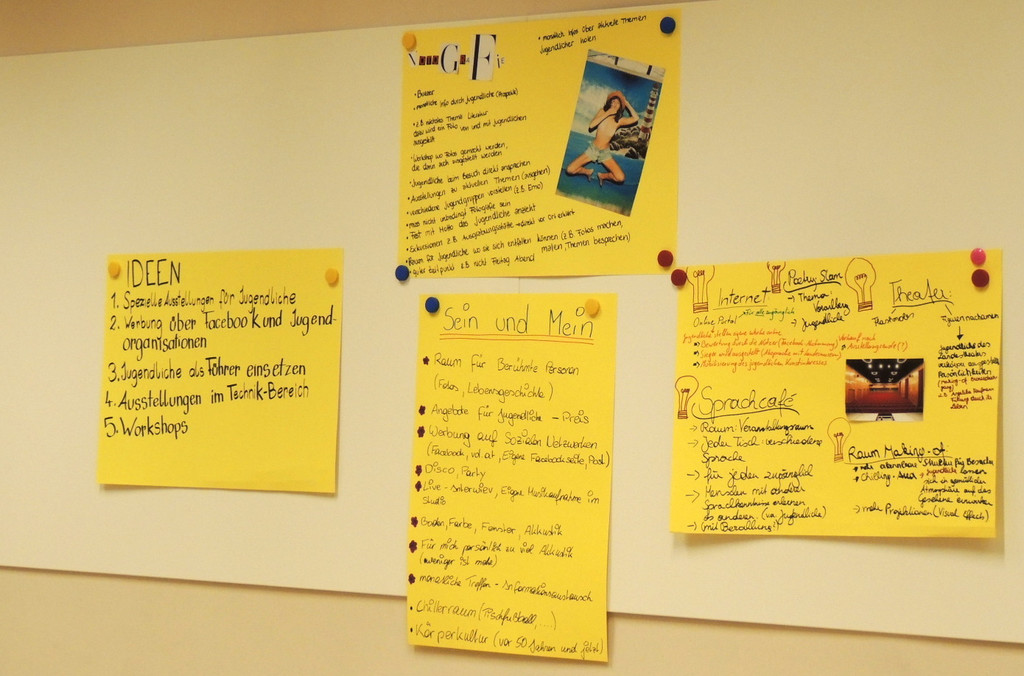 IDEEN
1. Spezielle Ausstellungen für Jugendliche
2. Werbung über Facebook und Jugend-
organisationen
3. Jugendliche als Führer einsetzen
4. Ausstellungen im Technik-Bereich
5. Workshops
• monatlich Infos über aktuelle Themen
Jugendlicher holen
• Buzzer
• monatliche Info durch Jugendliche
• z.B. nächstes Thema Literatur
dazu wird ein Foto von und mit Jugendlichen
ausgestellt
• Workshop wo Fotos gemacht werden,
die dann auch ausgestellt werden
• Jugendliche beim Besuch direkt ansprechen
• Ausstellungen zu aktuellen Themen
• verschiedene Jugendgruppen vorstellen (z.B. Emo)
• muss nicht unbedingt Fotografie sein
• Fest mit Motto das Jugendliche anzieht
• Exkursionen z.B. direkt vor Ort erklärt
• Raum für Jugendliche wo sie sich entfalten können (z.B. Fotos machen,
malen, Themen besprechen)
• guter Zeitpunkt z.B. nicht Freitag Abend
Sein und Mein
Raum für Berühmte Personen
(Fotos, Lebensgeschichte)
Angebote für Jugendliche - Preis
Werbung auf Sozialen Netzwerken
(Facebook, vol.at, Eigene Facebookseite, Pool)
Disco, Party
Live-Interview, Eigene Musikaufnahme im
Studio
Boden, Farbe, Fenster, Akkustik
Für mich persönlich zu viel Akkustik
(weniger ist mehr)
monatliche Treffen - Informationsaustausch
• Chillerraum (Tischfußball, ....)
• Körperkultur (vor 50 Jahren und jetzt)
Internet
Online Portal → Für alle zugänglich
Poetry Slam
→ Thema
Vorarlberg
→ Jugendliche
Theater:
Flashmobs
Figuren nachahmen
Jugendliche des
Landestheaters
Sprachcafé
→ Raum: Veranstaltungsraum
→ Jeder Tisch: verschiedene
Sprache
→ für jeden zugänglich
→ Menschen mit
Sprachkenntnisse erlernen
es anderen (via Jugendliche)
→ (mit Bezahlung!)
Raum Making-of:
• Chilling-Area
→ mehr Projektionen (Visual Effects)